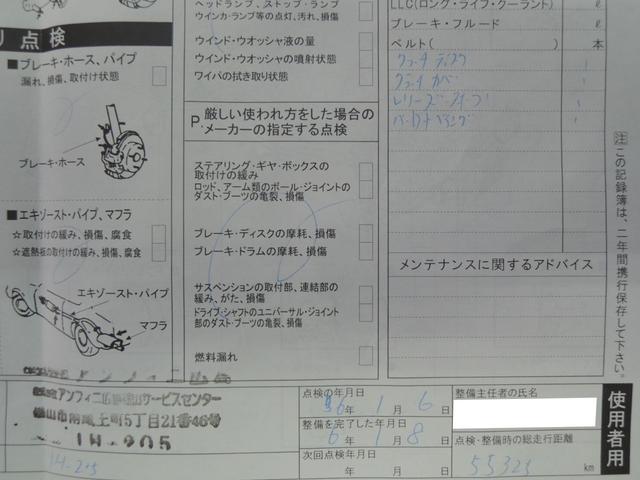 ヘッドランプ、ストップ・ランプ
ウインカ・ランプ等の点灯、汚れ、損傷
ウインド・ウオッシャ液の量
ウインド・ウオッシャの噴射状態
ワイパの拭き取り状態
P 厳しい使われ方をした場合の
メーカーの指定する点検
ステアリング・ギヤ・ボックスの
取付けの緩み
ロッド、アーム類のボール・ジョイントの
ダスト・ブーツの亀裂、損傷
ブレーキ・ディスクの摩耗、損傷
ブレーキ・ドラムの摩耗、損傷
サスペンションの取付部、連結部の
緩み、がた、損傷
ドライブ・シャフトのユニバーサル・ジョイント
部のダスト・ブーツの亀裂、損傷
燃料漏れ
り点検
■ブレーキ・ホース、パイプ
漏れ、損傷、取付け状態
ブレーキ・ホース
■エキゾースト・パイプ、マフラ
☆取付けの緩み、損傷、腐食
☆遮熱板の取付けの緩み、損傷、腐食
エキゾースト・パイプ
マフラ
LLC(ロング・ライフ・クーラント) ℓ
ブレーキ・フルード ℓ
ベルト( ) 本
クラッチディスク
クラッチカバー
メンテナンスに関するアドバイス
注 この記録簿は、二年間携行保存して下さい。
サービスセンター
5丁目21番46号
1H-205
14-205
点検の年月日
年 1月 6日
整備を完了した年月日
6年 1月 8日
次回点検年月日
年 月 日
整備主任者の氏名
点検・整備時の総走行距離
55323 km
使用者用